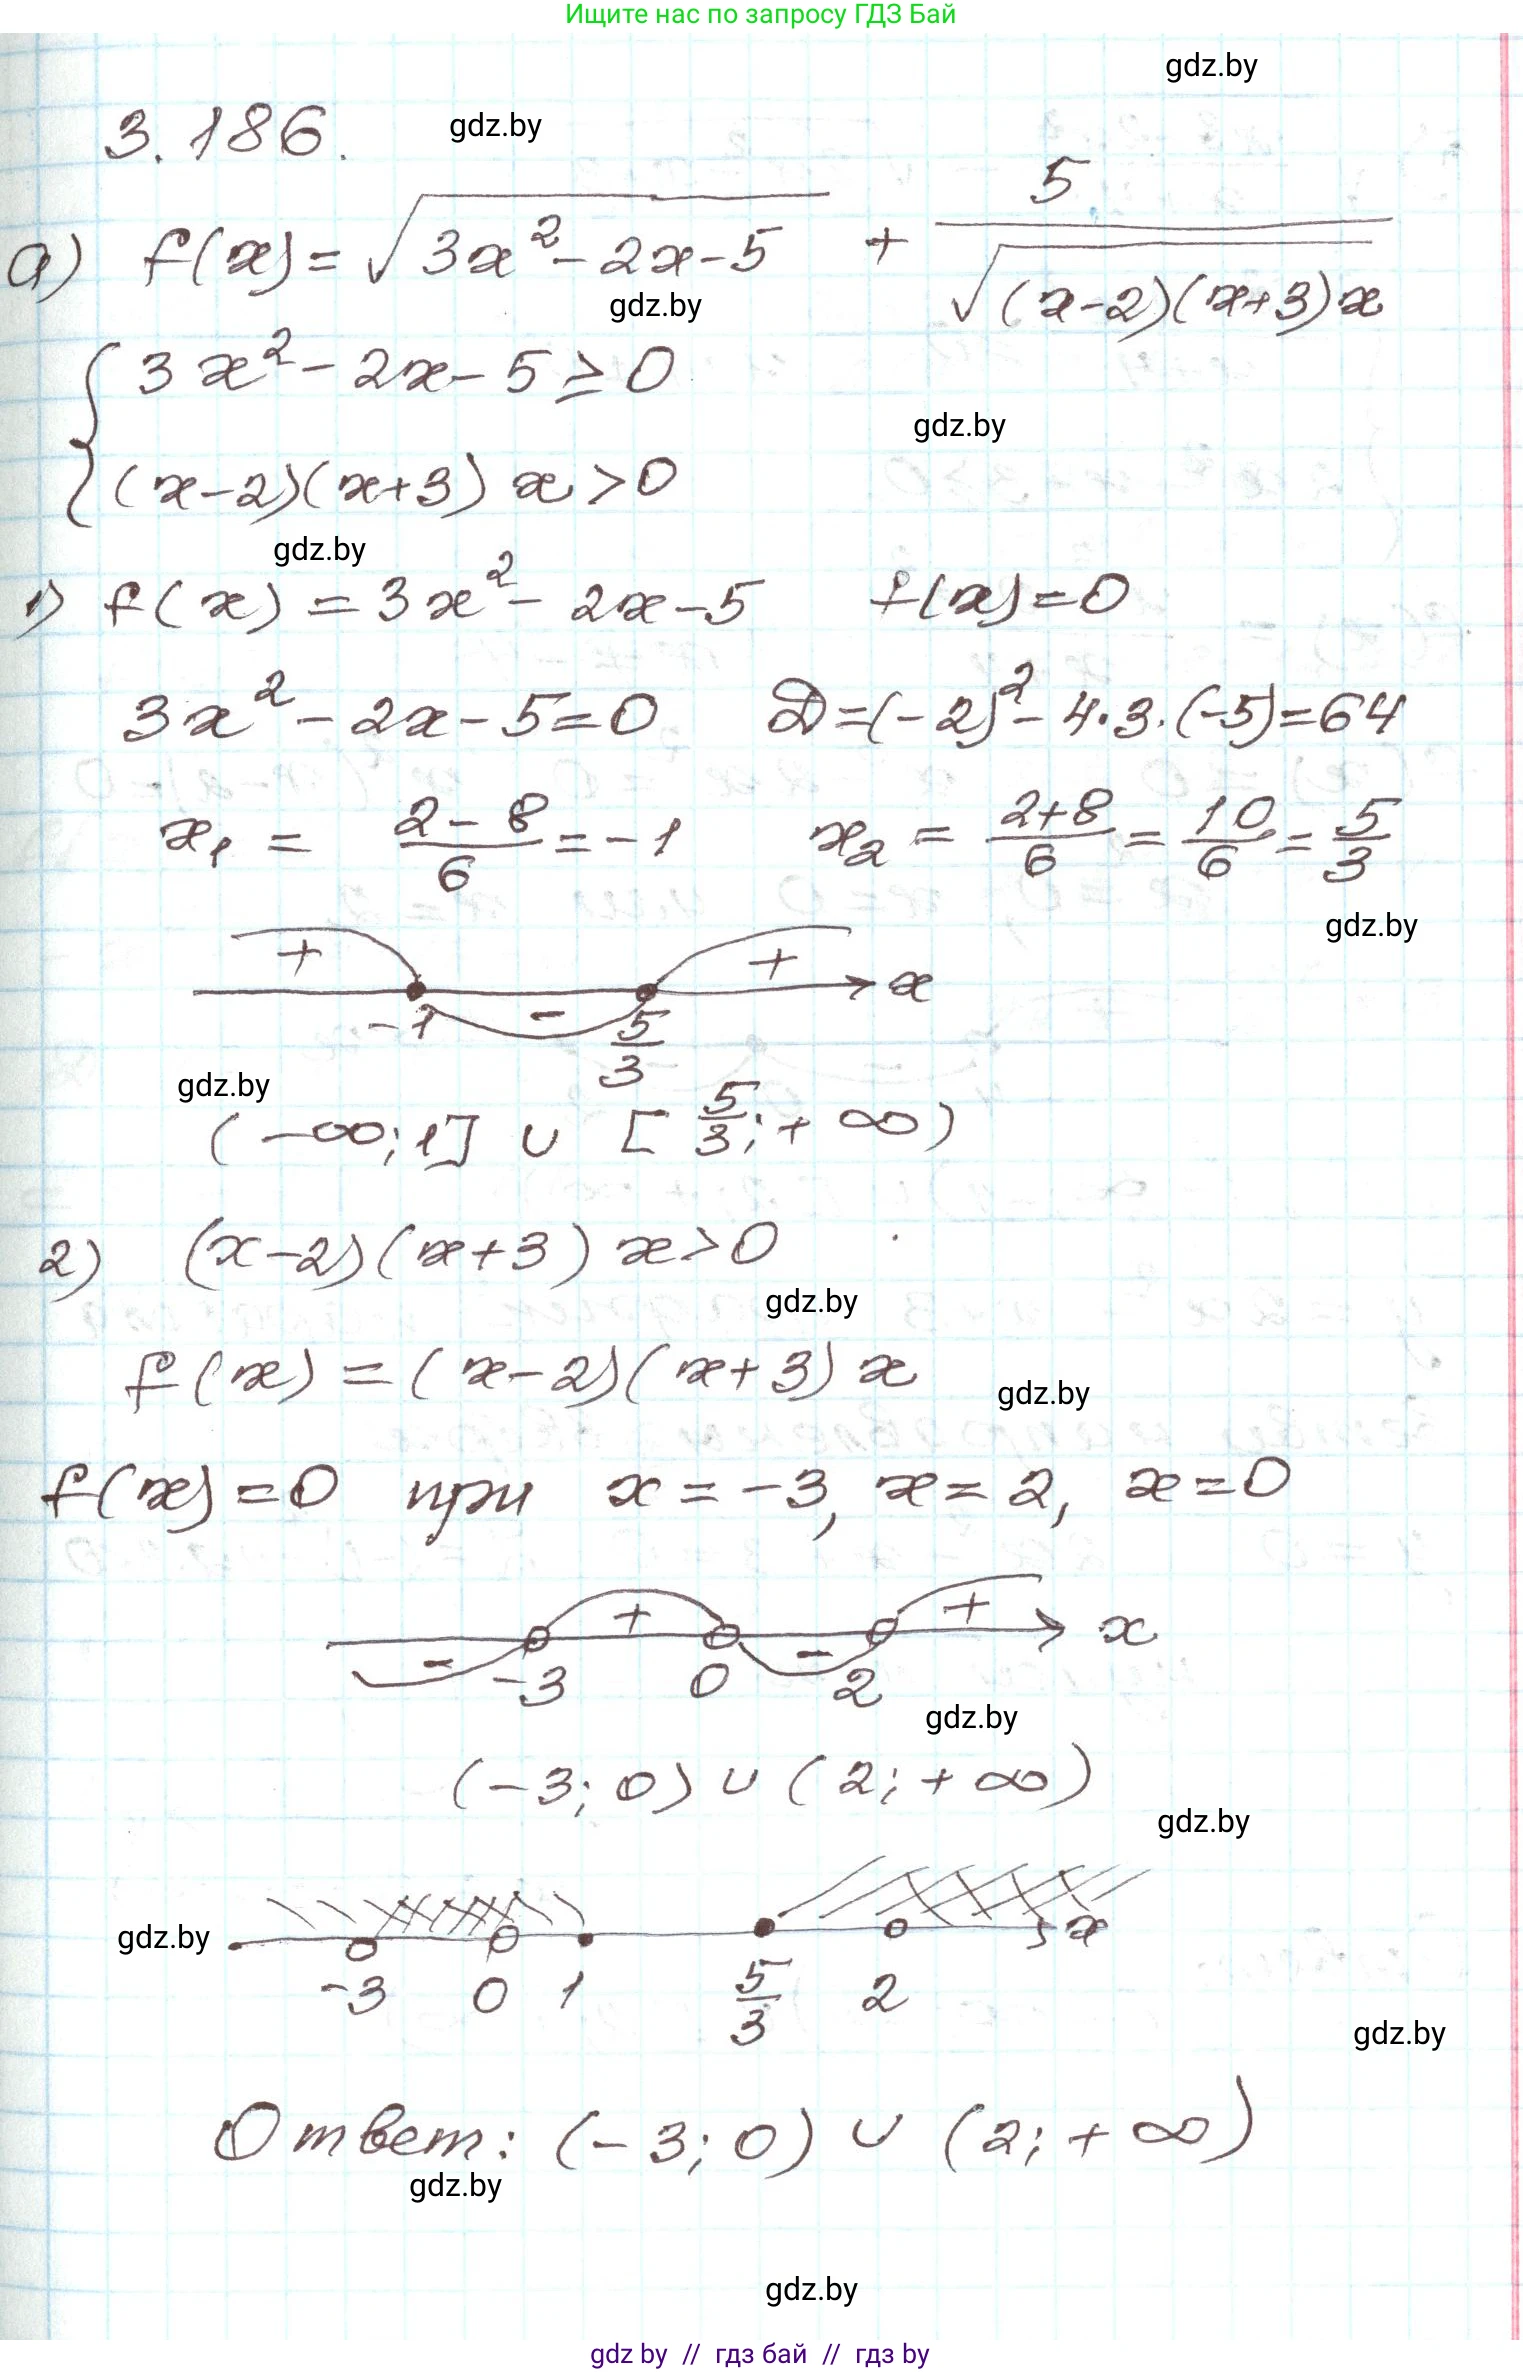 Ищите нас по запросу ГДЗ Бай
gdz.by
3.186.
gdz.by
а) f(x) = √(3x² - 2x - 5) + 5/√((x-2)(x+3)x)
gdz.by
{ 3x² - 2x - 5 ≥ 0
gdz.by
(x-2)(x+3) x > 0
gdz.by
1) f(x) = 3x² - 2x - 5 f(x) = 0
3x² - 2x - 5 = 0 D = (-2)² - 4·3·(-5) = 64
x₁ = (2 - 8)/6 = -1 x₂ = (2+8)/6 = 10/6 = 5/3
gdz.by
+ - + x
-1 5/3
gdz.by
(-∞; 1] ∪ [5/3; +∞)
2) (x-2)(x+3) x > 0
gdz.by
f(x) = (x-2)(x+3) x
gdz.by
f(x) = 0 при x = -3, x = 2, x = 0
- + - + x
-3 0 2
gdz.by
(-3; 0) ∪ (2; +∞)
gdz.by
gdz.by
x
-3 0 1 5/3 2
gdz.by
Ответ: (-3; 0) ∪ (2; +∞)
gdz.by
gdz.by
gdz by // гдз бай // гдз by